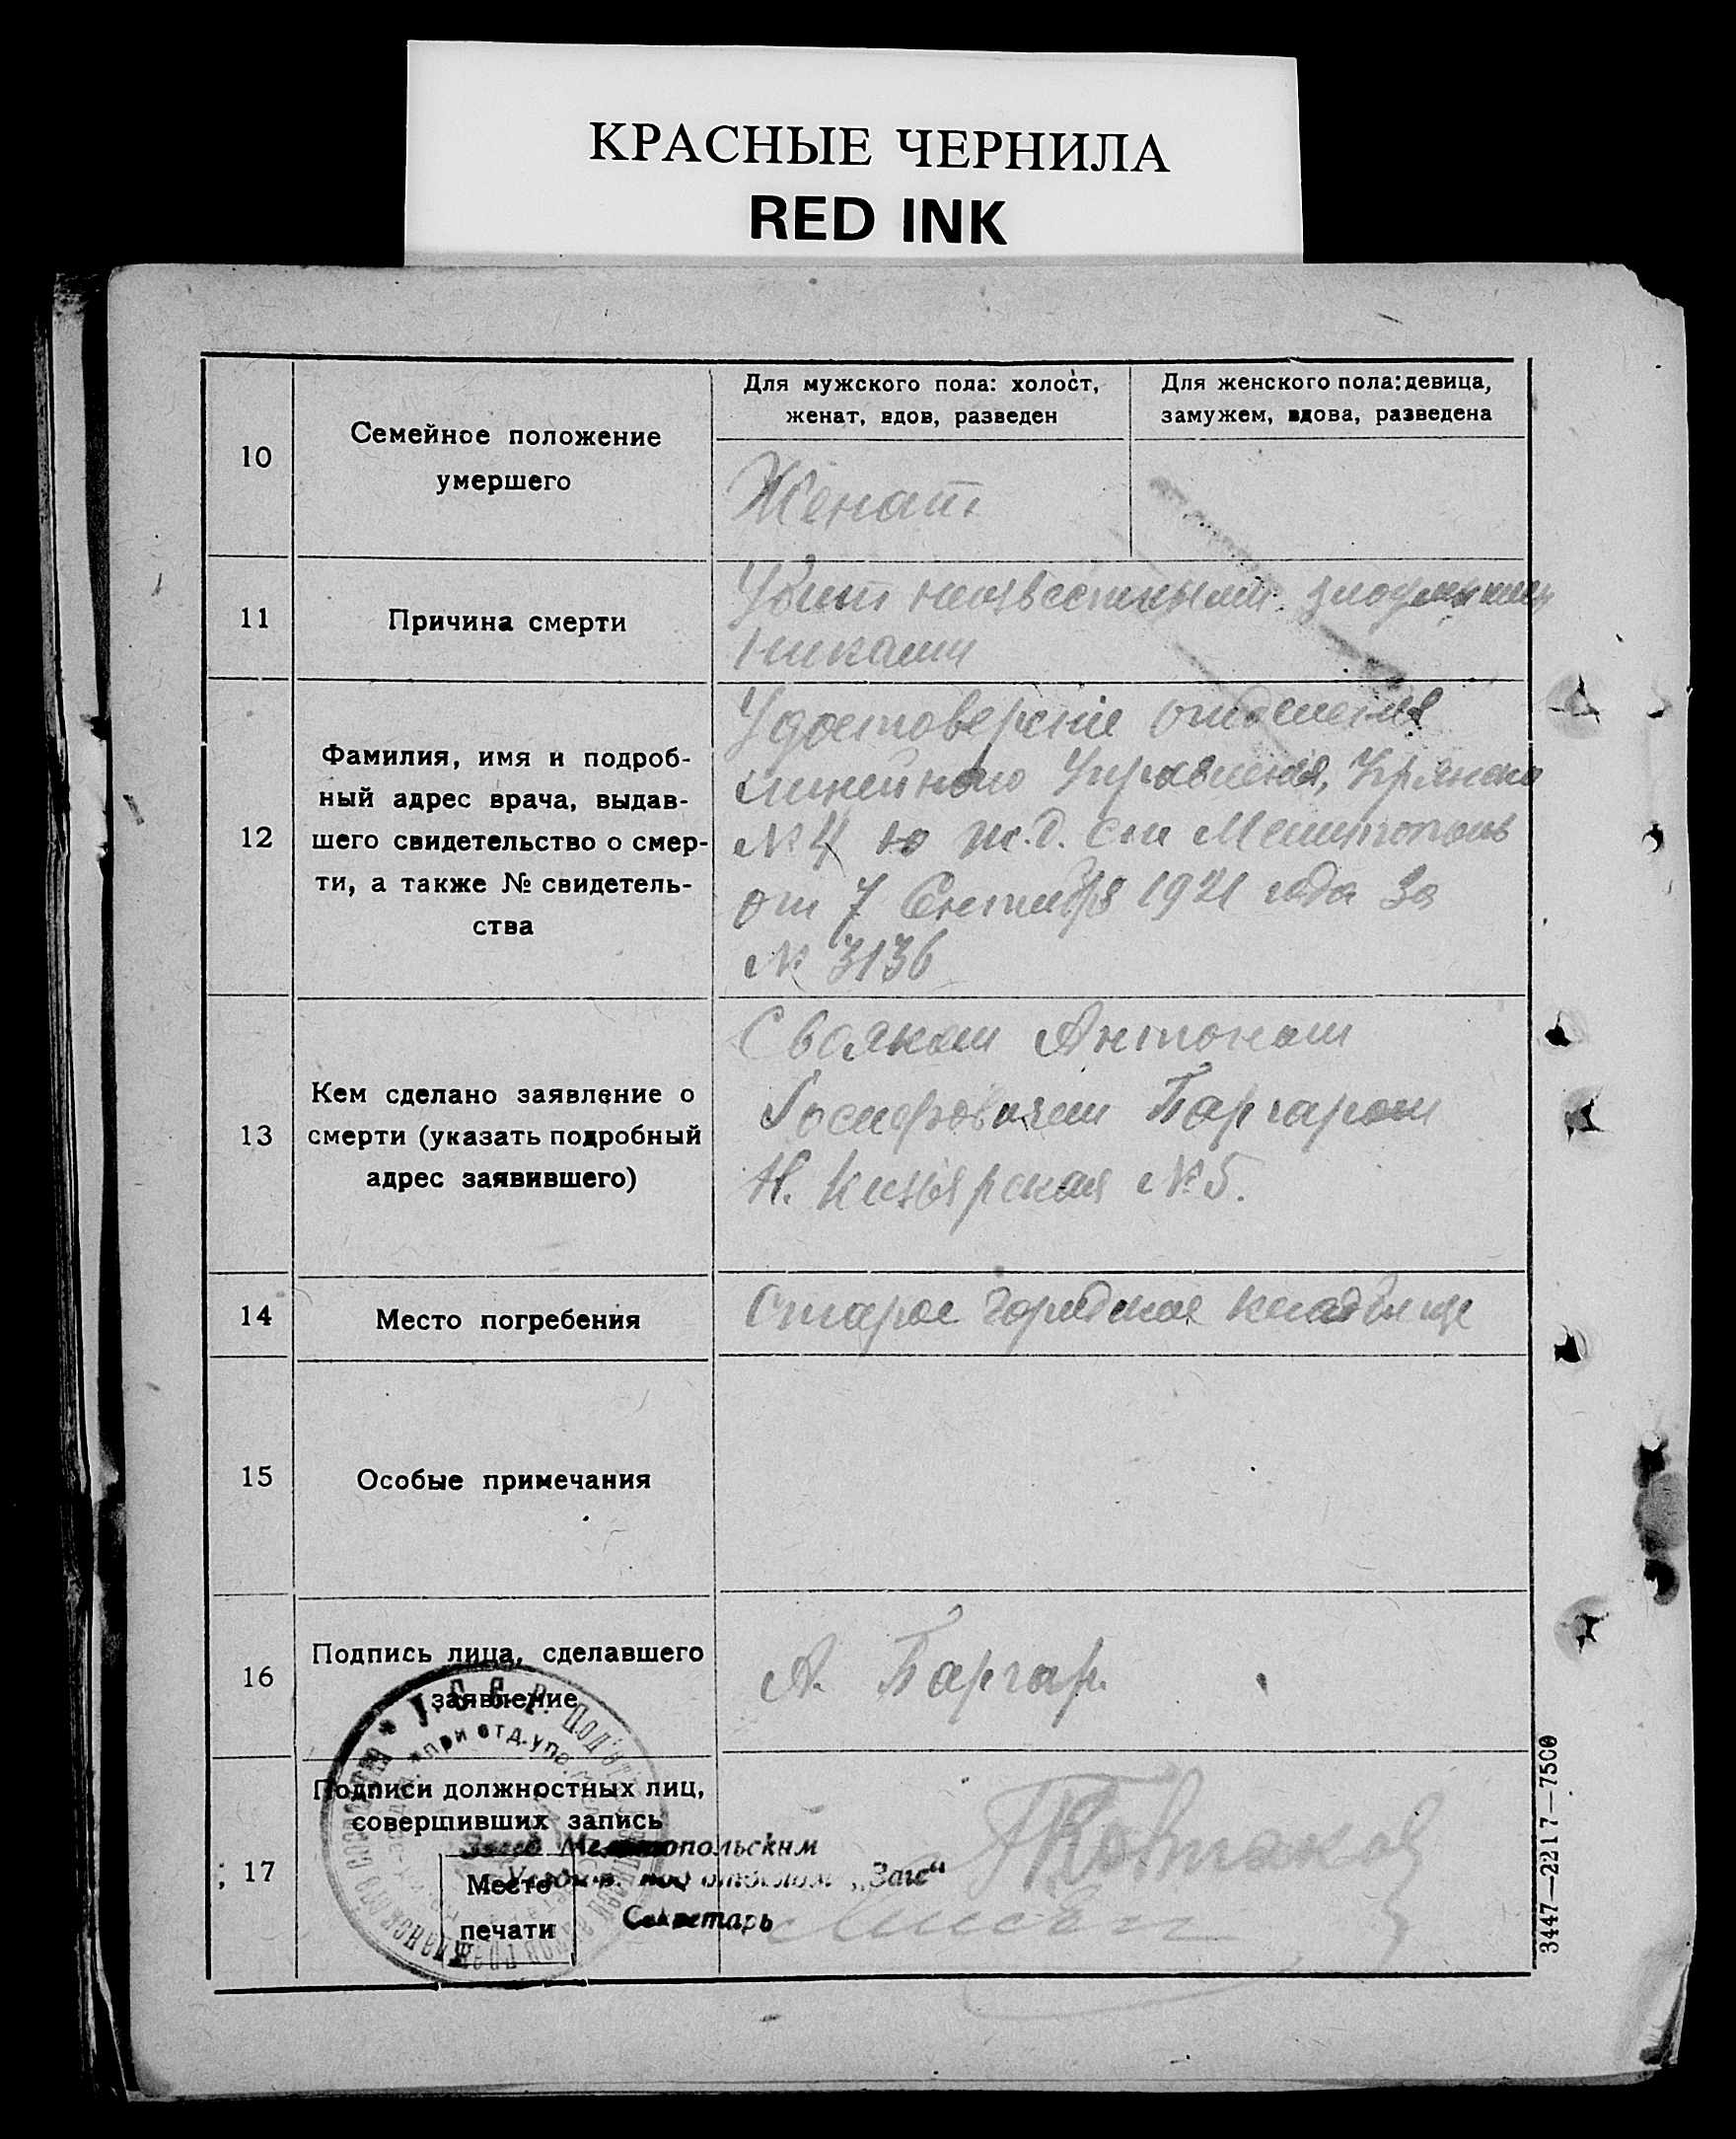 КРАСНЫЕ ЧЕРНИЛА
RED INK
10
Семейное положение
умершего
Для мужского пола: холост,
женат, вдов, разведен
Для женского пола: девица,
замужем, вдова, разведена
Женат
11
Причина смерти
Убит неизвестными
никами
12
Фамилия, имя и подроб-
ный адрес врача, выдав-
шего свидетельство о смер-
ти, а также № свидетель-
ства
Удостоверение отделения
линейного Управления,
№ 4 ю ж.д. ст Мелитополь
от 7 Сентября 1921 года за
№ 3136
13
Кем сделано заявление о
смерти (указать подробный
адрес заявившего)
Свояком Антоном
Иосифовичем Баргаром
Н. Кизіярская № 5.
14
Место погребения
Старое городское кладбище
15
Особые примечания
16
Подпись лица, сделавшего
заявление
А. Баргар.
17
Подписи должностных лиц,
совершивших запись
Место
печати
Завед Мелитопольским
под отделом „Загс“
Секретарь
У.С.С.Р.
при отд. упр.
3447—2217—7500